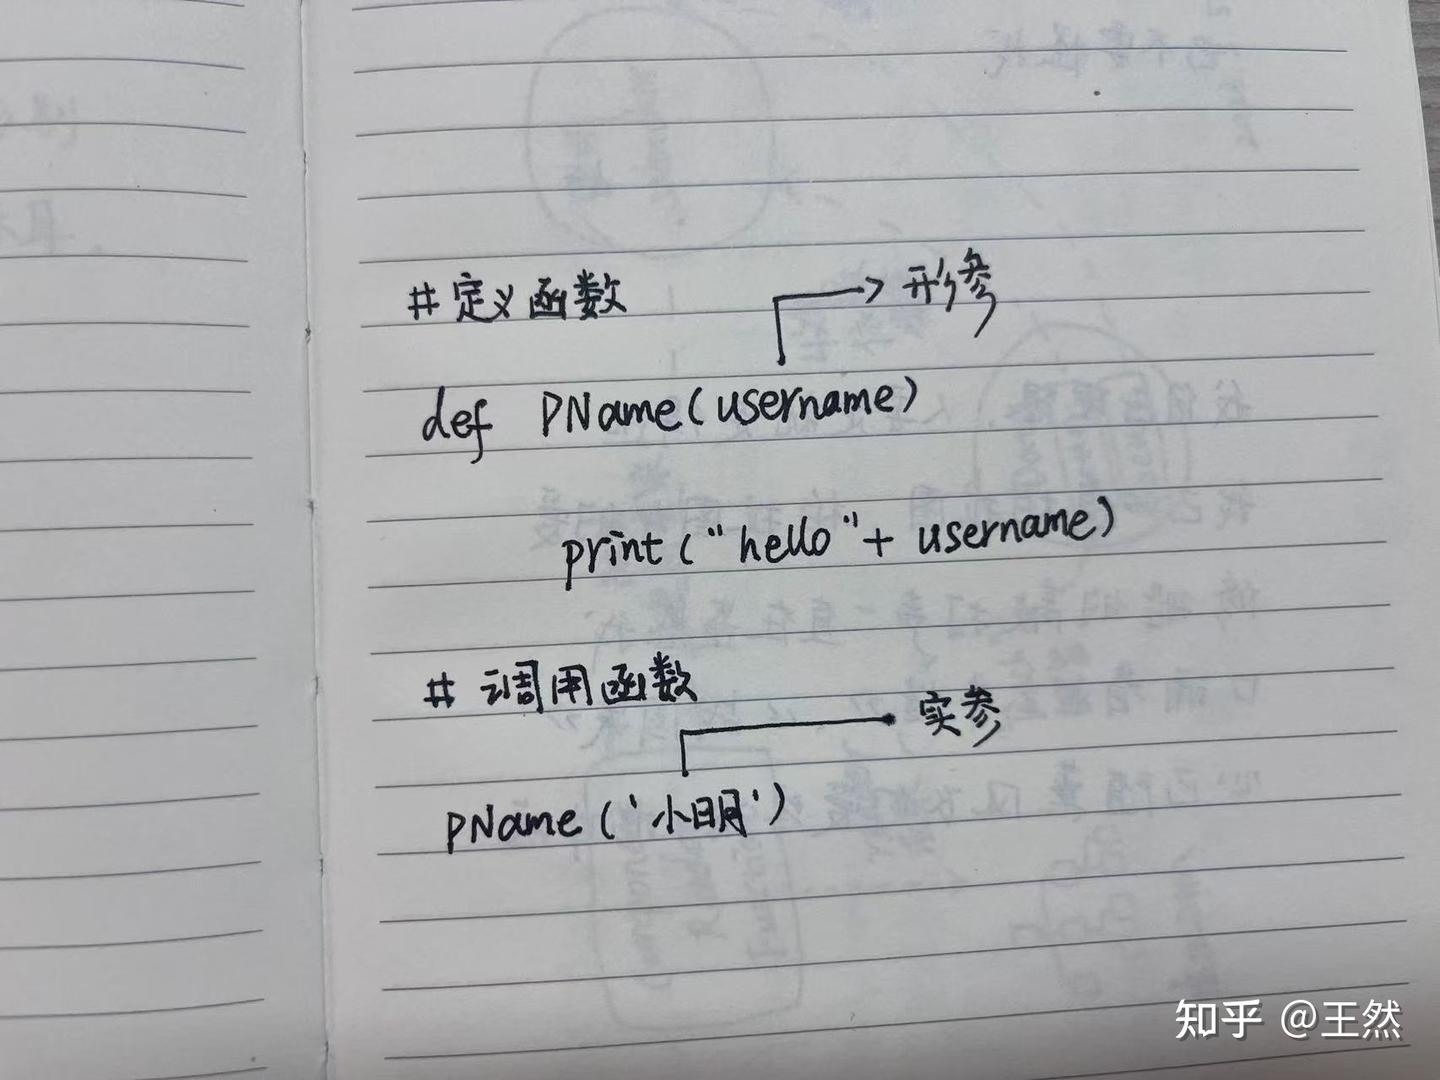 #定义函数
形参
def PName(username)
print("hello"+ username)
# 调用函数
实参
PName('小明')
知乎 @王然